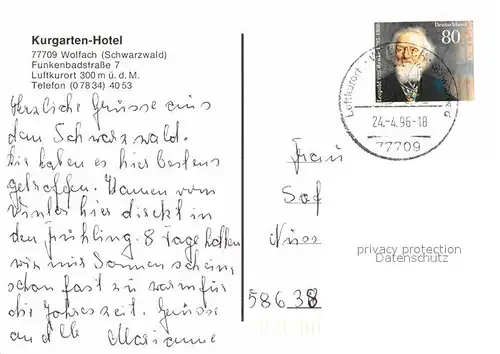 Kurgarten-Hotel
77709 Wolfach (Schwarzwald)
Funkenbadstraße 7
Luftkurort 300 m ü. d. M.
Telefon (0 78 34) 40 53
Herzliche Grüsse aus
dem Schwarzwald.
Wir haben es hier bestens
getroffen. Kamen vom
Winter hier direkt in
den Frühling. 8 Tage hatten
wir nur Sonnenschein,
schon fast zu warm für
die Jahreszeit. Grüsse
an alle Marianne
Deutschland
80
Luftkurort
24.-4.96-18
77709
Frau
58638
privacy protection
Datenschutz